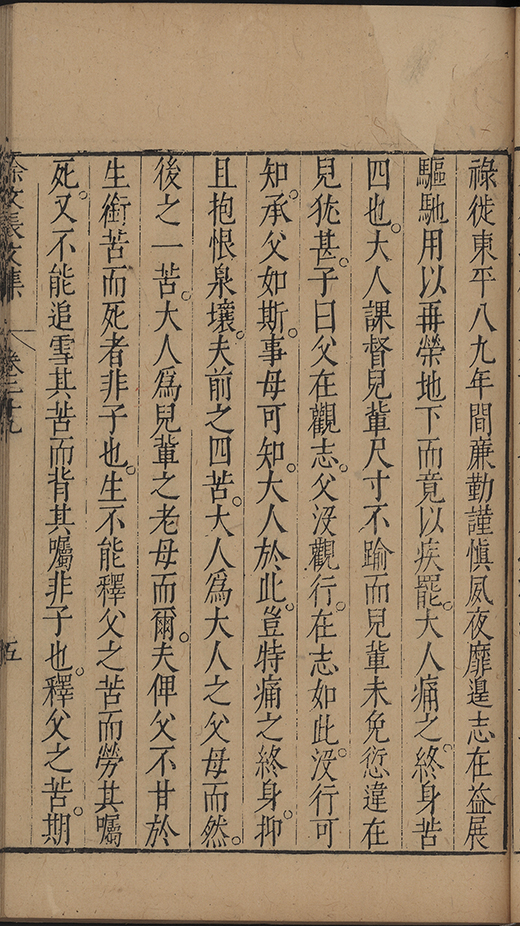 祿徙東平八九年間亷勤謹慎夙夜靡遑志在益展
驅馳用以再榮地下而竟以疾罷。大人痛之。終身苦
四也。大人課督兒輩尺寸不踰而兒輩未免愆違在
兒犹甚。子曰父在觀志。父沒觀行。在志如此。沒行可
知。承父如斯。事母可知。大人於此。豈特痛之終身。抑
且抱恨泉壤。夫前之四苦。大人爲大人之父母而然。
後之一苦。大人爲兒輩之老母而爾。夫俾父不甘於
生銜苦而死者非子也。生不能釋父之苦而勞其囑
死。又不能追雪其苦而背其囑非子也。釋父之苦。期
徐文長文集
卷二十九
五